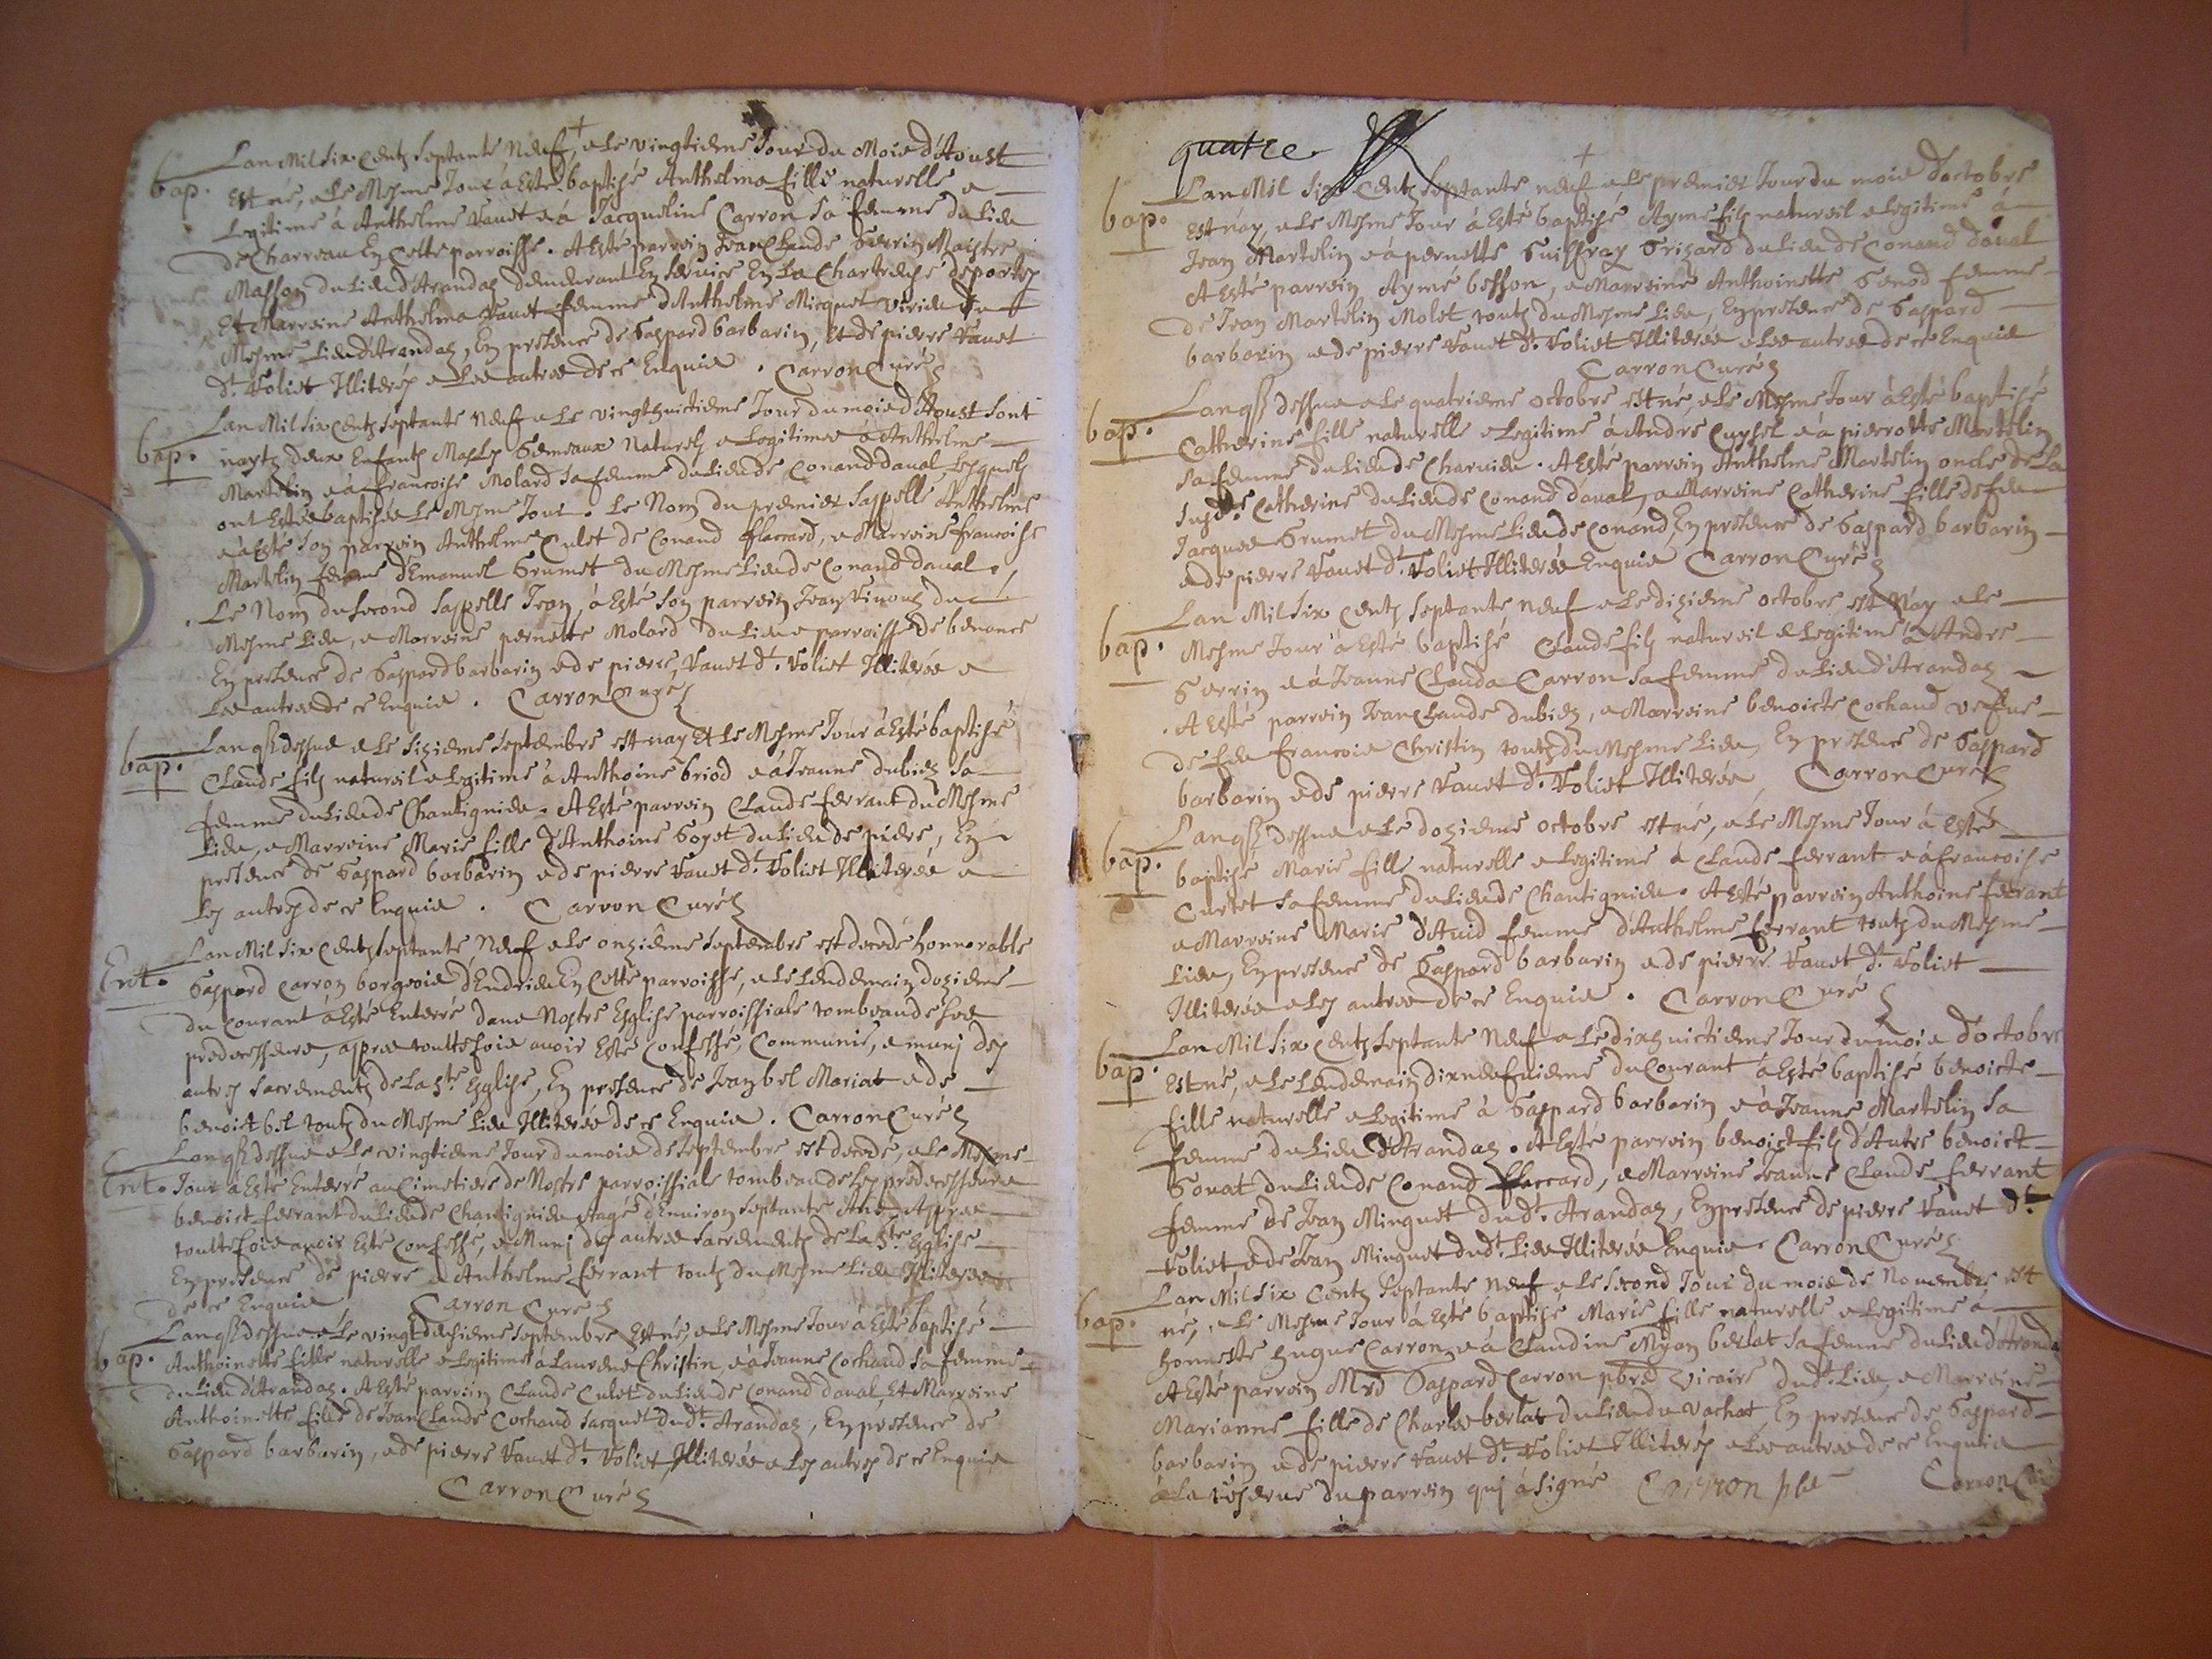 Lan Mil six Centz septante neuf, e le vingtieme Jour du Mois d'Aoust
bap. Est né, e le Mesme Jour à Esté baptisé Anthelma fille naturelle e
Legitime à Anthelme Vauet e à Jacqueline Carron sa femme du Lieu
de Charveau En Cette parroisse. A Esté parrein Jean Claude Serrin Maistre
Masson du Lieu d'Arandaz demeurant En service En La Chartreuse de portes
Et Marreine Anthelma Vauet femme d'Anthelme Micquet du
Mesme Lieu d'Arandaz, En presence de Gaspard barbarin, Et de pierre Vauet
dt. Voliet Illiterés e Les autres de ce Enquis. Carron Curé
Lan Mil six Centz septante neuf e Le vingthuictieme Jour du mois d'Aoust sont
bap. nayz deux Enfantz Masles Gemeaux Naturelz e Legitimes à Anthelme
Martelin e à francoise Molard sa femme du Lieu de Conand daval, Lesquelz
ont Estés baptisés Le Mesme Jour. Le Nom du premier sappelle Anthelme
e à Esté son parrein Anthelme Culet de Conand flaccard, e Marreine francoise
Martelin femme d'Emanuel Grumet du Mesme Lieu de Conand daval.
Le Nom du second sappelle Jean, à Esté son parrein Jean du
Mesme Lieu, e Marreine pernette Molard du Lieu e parroisse de benonce
En presence de Gaspard barbarin e de pierre Vauet dt. Voliet Illiterés e
Les autres de ce Enquis. Carron Curé
Lan q dessus e Le sizieme septembre est nay Et Le Mesme Jour à Esté baptisé
bap. Claude filz naturel e Legitime à Anthoine briod e à Jeanne dubiez sa
femme du Lieu de Chantignieu. A Esté parrein Claude ferrant du Mesme
Lieu, e Marreine Marie fille d'Anthoine Goyet du Lieu de, En
presence de Gaspard barbarin e de pierre Vauet dt. Voliet Illiterés e
Les autres de ce Enquis. Carron Curé
Lan Mil six Centz septante Neuf e Le onzième septembre est decedé honnorable
Ent. Gaspard Carron borgeois d'Endrieu En Cette parroisse, e Le Lendemain dozieme
du Courant à Esté Enterré dans Nostre Esglise parroissiale tombeau de ses
predecesseurs, aspres touttefois avoir Esté Confessé, Communié, e muni des
autres sacrementz de La Ste. Esglise, En presence de Jean bel Mariat e de
benoit bel toutz du Mesme Lieu Illiterés de ce Enquis. Carron Curé
Lan q dessus e Le vingtieme Jour du mois de septembre est decedé, e Le Mesme
Ent. Jour à Esté Enterré au Cimetiere de Nostre parroissiale tombeau de ses predecesseurs
benoict ferrant du Lieu de Chantignieu eagé d'Environ septante Ans Aspres
touttefois avoir Esté Confessé, e Muni des autres sacrementz de La Ste. Esglise
En presence de pierre e Anthelme ferrant toutz du Mesme Lieu Illiterés
de ce Enquis Carron Curé
Lan q dessus e Le septembre Est né, e Le Mesme Jour à Esté baptisé
bap. Anthoinette fille naturelle e Legitime à Laurens Christin e à Jeanne Cochaud sa femme
du Lieu d'Arandaz. A Esté parrein Claude Culet du Lieu de Conand daval, Et Marreine
Anthoinette fille de Jean Claude Cochaud Jacquet dudt. Arandaz, En presence de
Gaspard barbarin, e de pierre Vauet dt. Voliet, Illiterés e Les autres de ce Enquis
Carron Curé
quatre
Lan Mil six Centz septante neuf e Le premier Jour du mois d'octobre
bap. Est nay, e Le Mesme Jour à Esté baptisé Aymé filz naturel e Legitime à
Jean Martelin e à pernette Guiffray Grizard du Lieu de Conand daval
A Esté parrein Aymé besson, e Marreine Anthoinette Genod femme
de Jean Martelin Molet toutz du Mesme Lieu, En presence de Gaspard
barbarin e de pierre Vauet dt. Voliet Illiterés e Les autres de ce Enquis
Carron Curé
Lan q dessus e Le quatrieme octobre est né, e Le Mesme Jour à Esté baptisé
bap. Catherine fille naturelle e Legitime à André Cuzsel e à pierrotte Martelin
sa femme du Lieu de Charvieu. A Esté parrein Anthelme Martelin oncle de La
Catherine du Lieu de Conand daval, e Marreine Catherine fille de feu
Jacques Grumet du Mesme Lieu de Conand, En presence de Gaspard barbarin
e de pierre Vauet dt. Voliet Illiterés Enquis Carron Curé
Lan Mil six Centz septante neuf e Le dizieme octobre est Nay e Le
bap. Mesme Jour à Esté baptisé Claude filz naturel e Legitime à André
Serrin e à Jeanne Clauda Carron sa femme du Lieu d'Arandaz
A Esté parrein Jean Claude dubiez, e Marreine benoicte Cochaud vefue
de feu francois Christin toutz du Mesme Lieu, En presence de Gaspard
barbarin e de pierre Vauet dt. Voliet Illiterés Carron Curé
Lan q dessus e Le dozieme octobre est né, e Le Mesme Jour à Esté
bap. baptisé Marie fille naturelle e Legitime à Claude ferrant e à francoise
Curtet sa femme du Lieu de Chantignieu. A Esté parrein Anthoine ferrant
e Marreine Marie d'Avid femme d'Anthelme ferrant toutz du Mesme
Lieu, En presence de Gaspard barbarin e de pierre Vauet dt. Voliet
Illiterés e Les autres de ce Enquis. Carron Curé
Lan Mil six Centz septante Neuf e Le dixhuictieme Jour du mois d'octobre
bap. Est né, e Le Lendemain dixneufvieme du Courant à Esté baptisé benoicte
fille naturelle e Legitime à Gaspard barbarin e à Jeanne Martelin sa
femme du Lieu d'Arandaz. A Esté parrein benoict filz d'Autre benoict
Gonat du Lieu de Conand flaccard, e Marreine Jeanne Claude ferrant
femme de Jean Minguet dudt. Arandaz, En presence de pierre Vauet dt.
Voliet, e de Jean Minguet dudt. Lieu Illiterés Enquis. Carron Curé
Lan Mil six Centz septante Neuf e Le second Jour du mois de Novembre est
bap. né, e Le Mesme Jour à Esté baptisé Marie fille naturelle e Legitime à
honneste hugue Carron e à Claudine Myan berlat sa femme du Lieu d'Aranda
A Esté parrein Gaspard Carron vicaire dudt. Lieu, e Marreine
Marianne fille de Charles berlat du Lieu du vachat, En presence de Gaspard
barbarin e de pierre Vauet dt. Voliet Illiterés e Les autres de ce Enquis
à La reserve du parrein qui à signé Carron pbr Carron Curé